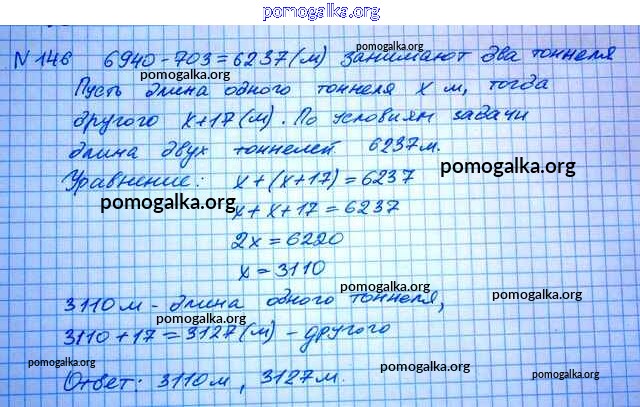 pomogalka.org
N 146 6940-703=6237(м) занимают два тоннеля
pomogalka.org
Пусть длина одного тоннеля x м, тогда
pomogalka.org
другого x+17(м). По условиям задачи
длина двух тоннелей 6237м.
pomogalka.org
Уравнение: x+(x+17)=6237
pomogalka.org
x+x+17=6237
2x=6220
x=3110
pomogalka.org
3110м-длина одного тоннеля,
pomogalka.org
3110+17=3127(м)-другого
pomogalka.org
pomogalka.org
pomogalka.org
Ответ: 3110м, 3127м.